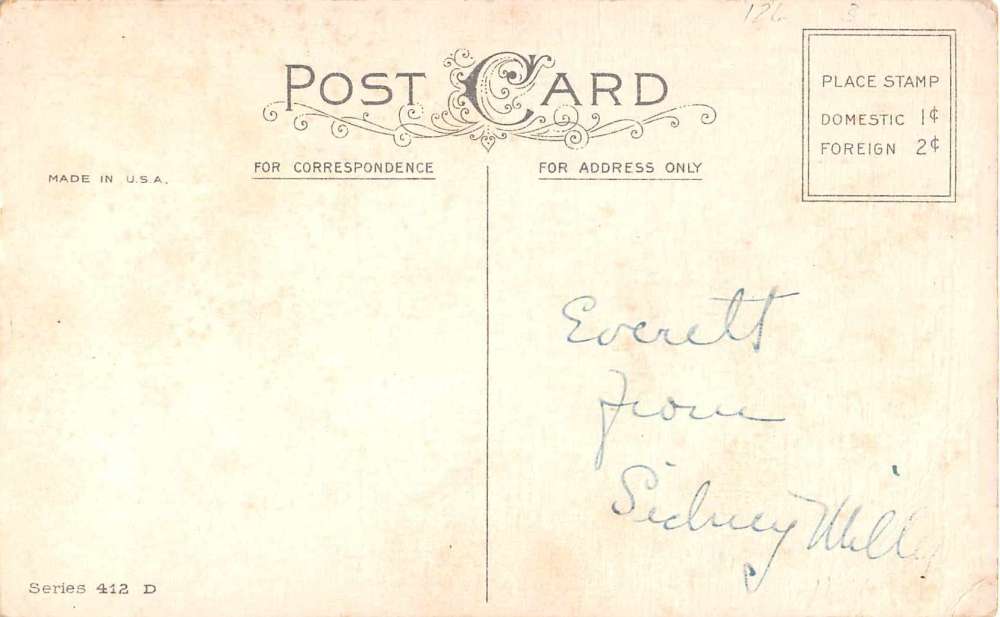 126 3
POST CARD
PLACE STAMP
DOMESTIC 1¢
FOREIGN 2¢
FOR CORRESPONDENCE
FOR ADDRESS ONLY
MADE IN U.S.A.
Everett
from
Sidney
Series 412 D